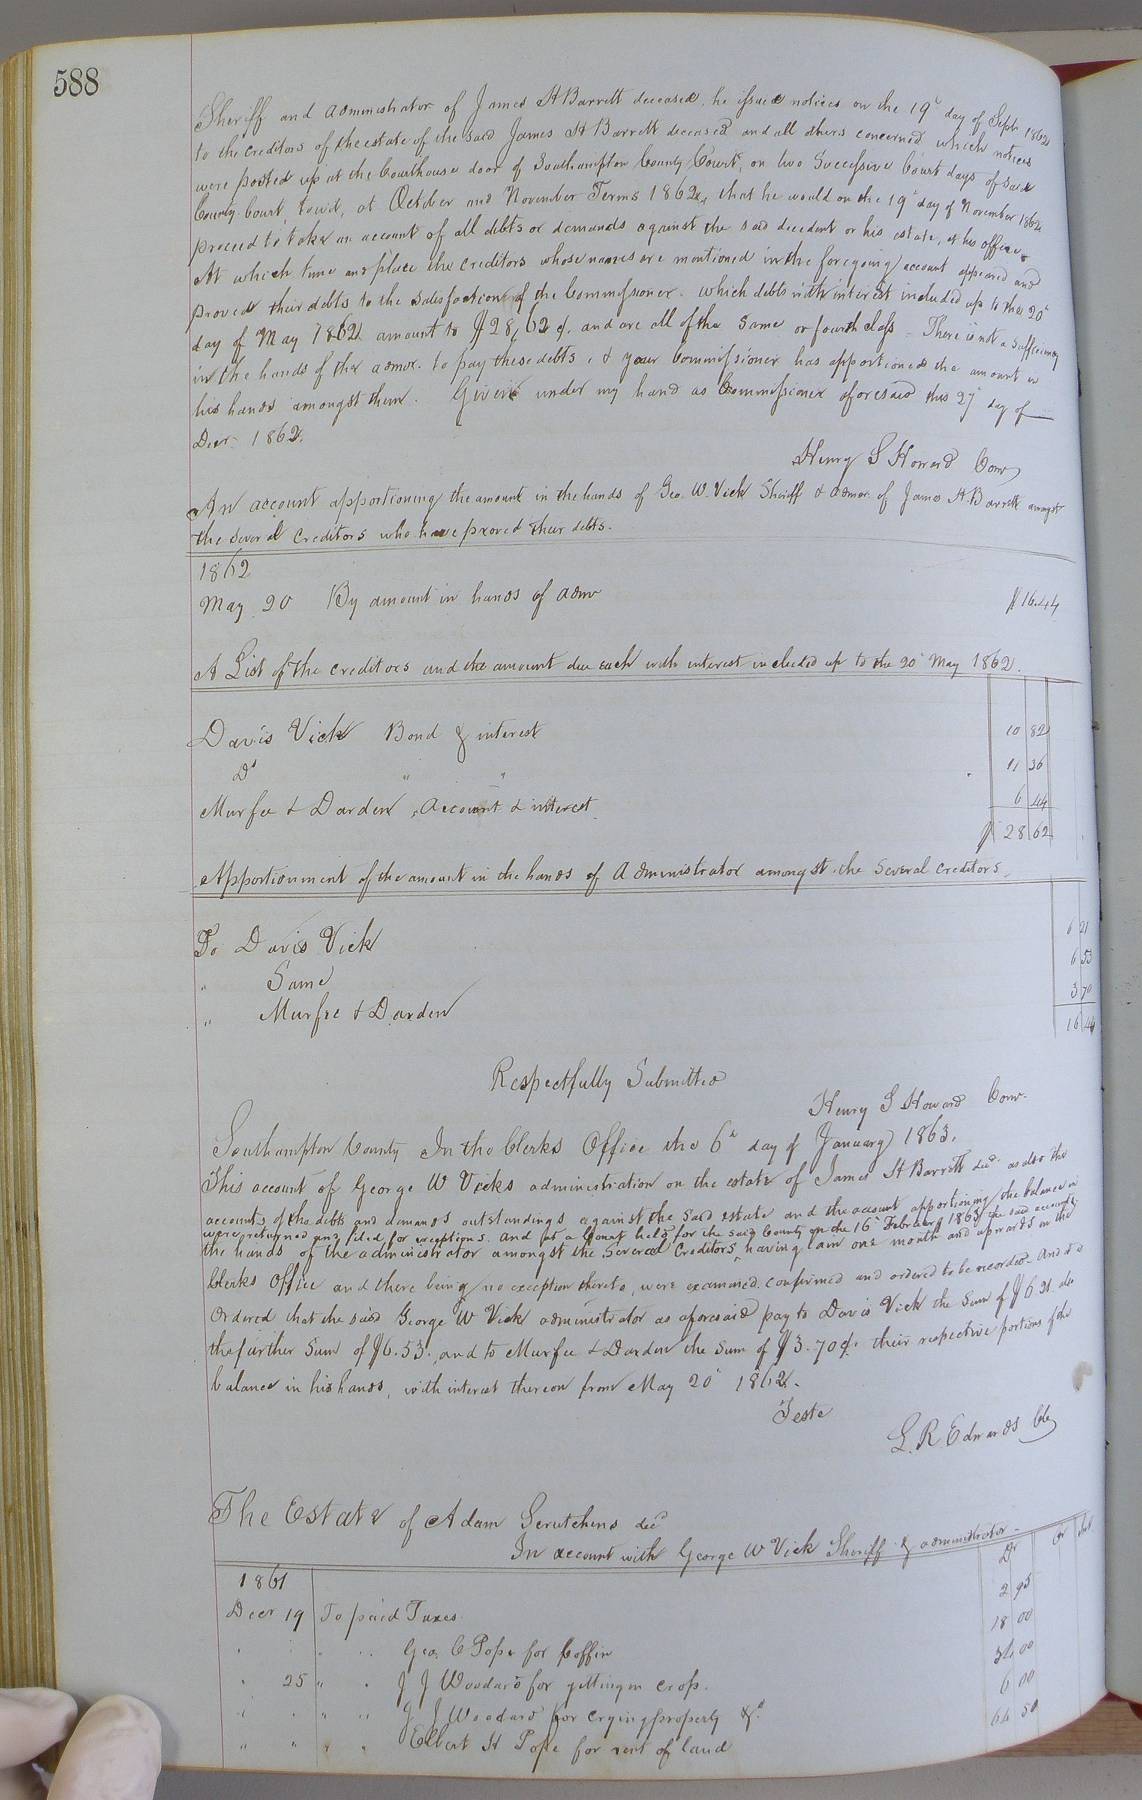 588
Sheriff and administrator of James H Barrett deceased, he issued notices on the 19" day of Septr 1862
to the creditors of the estate of the said James H Barrett deceased and all others concerned which notices
were posted up at the Courthouse door of Southampton County Court, on two Successive Court days of said
County Court, towit, at October and November Terms 1862, that he would on the 19" day of November 1862
proceed to take an account of all debts or demands against the said decedent or his estate, at his office
At which time and place the creditors whose names are mentioned in the foregoing account appeared and
proved their debts to the satisfaction of the Commissioner. which debts with interest included up to the 20"
day of May 1862 amount to $28,62 ¢. and are all of the same or fourth class - There is not a sufficiency
in the hands of the admor. to pay these debts, & your Commissioner has apportioned the amount in
his hands amongst them. Given under my hand as Commissioner aforesaid this 27" day of
Decr 1862.
Henry S Howard Comr
An account apportioning the amount in the hands of Geo. W. Vick Sheriff & admor. of James H Barrett amongst
the several creditors who have proved their debts.
1862
May 20 By amount in hands of admr $16.44
A List of the creditors and the amount due each with interest included up to the 20" May 1862.
Davis Vick Bond & interest 10 82
Do " " 11 36
Murfee & Darden, account & interest 6 44
$ 28 62
Apportionment of the amount in the hands of Administrator amongst the several creditors.
To Davis Vick 6 21
" Same 6 53
" Murfee & Darden 3 70
16 44
Respectfully Submitted
Henry S Howard Comr.
Southampton County In the Clerks Office the 6th day of January 1863.
This account of George W Vicks administration on the estate of James H Barrett decd. as also the
accounts of the debts and demands outstandings against the said estate and the account apportioning the balance in
were returned and filed for exceptions. and at a Court held for the said County on the 16" February 1863 the said accounts
the hands of the administrator amongst the several creditors having lain one month and upwards in the
Clerks Office and there being no exception thereto, were examined. confirmed and ordered to be recorded - And it is
Ordered that the said George W Vick administrator as aforesaid pay to Davis Vick the sum of $6.21. do
the further Sum of $6.53. and to Murfee & Darden the sum of $3.70¢. their respective portions of the
balance in his hands, with interest thereon from May 20" 1862.
Teste
L. R. Edwards Clk
The Estate of Adam Scrutchins decd
In account with George W Vick Sheriff & administrator -
Dr Cr
1861
Decr 19 To paid Taxes 2 95
" " " " Geo. C Pope for Coffin 18 00
" 25 " " J J Woodard for getting in crop. 34 00
" " " " J J Woodard for crying property &c. 6 00
" " " " Elbert H Pope for rent of land 64 50